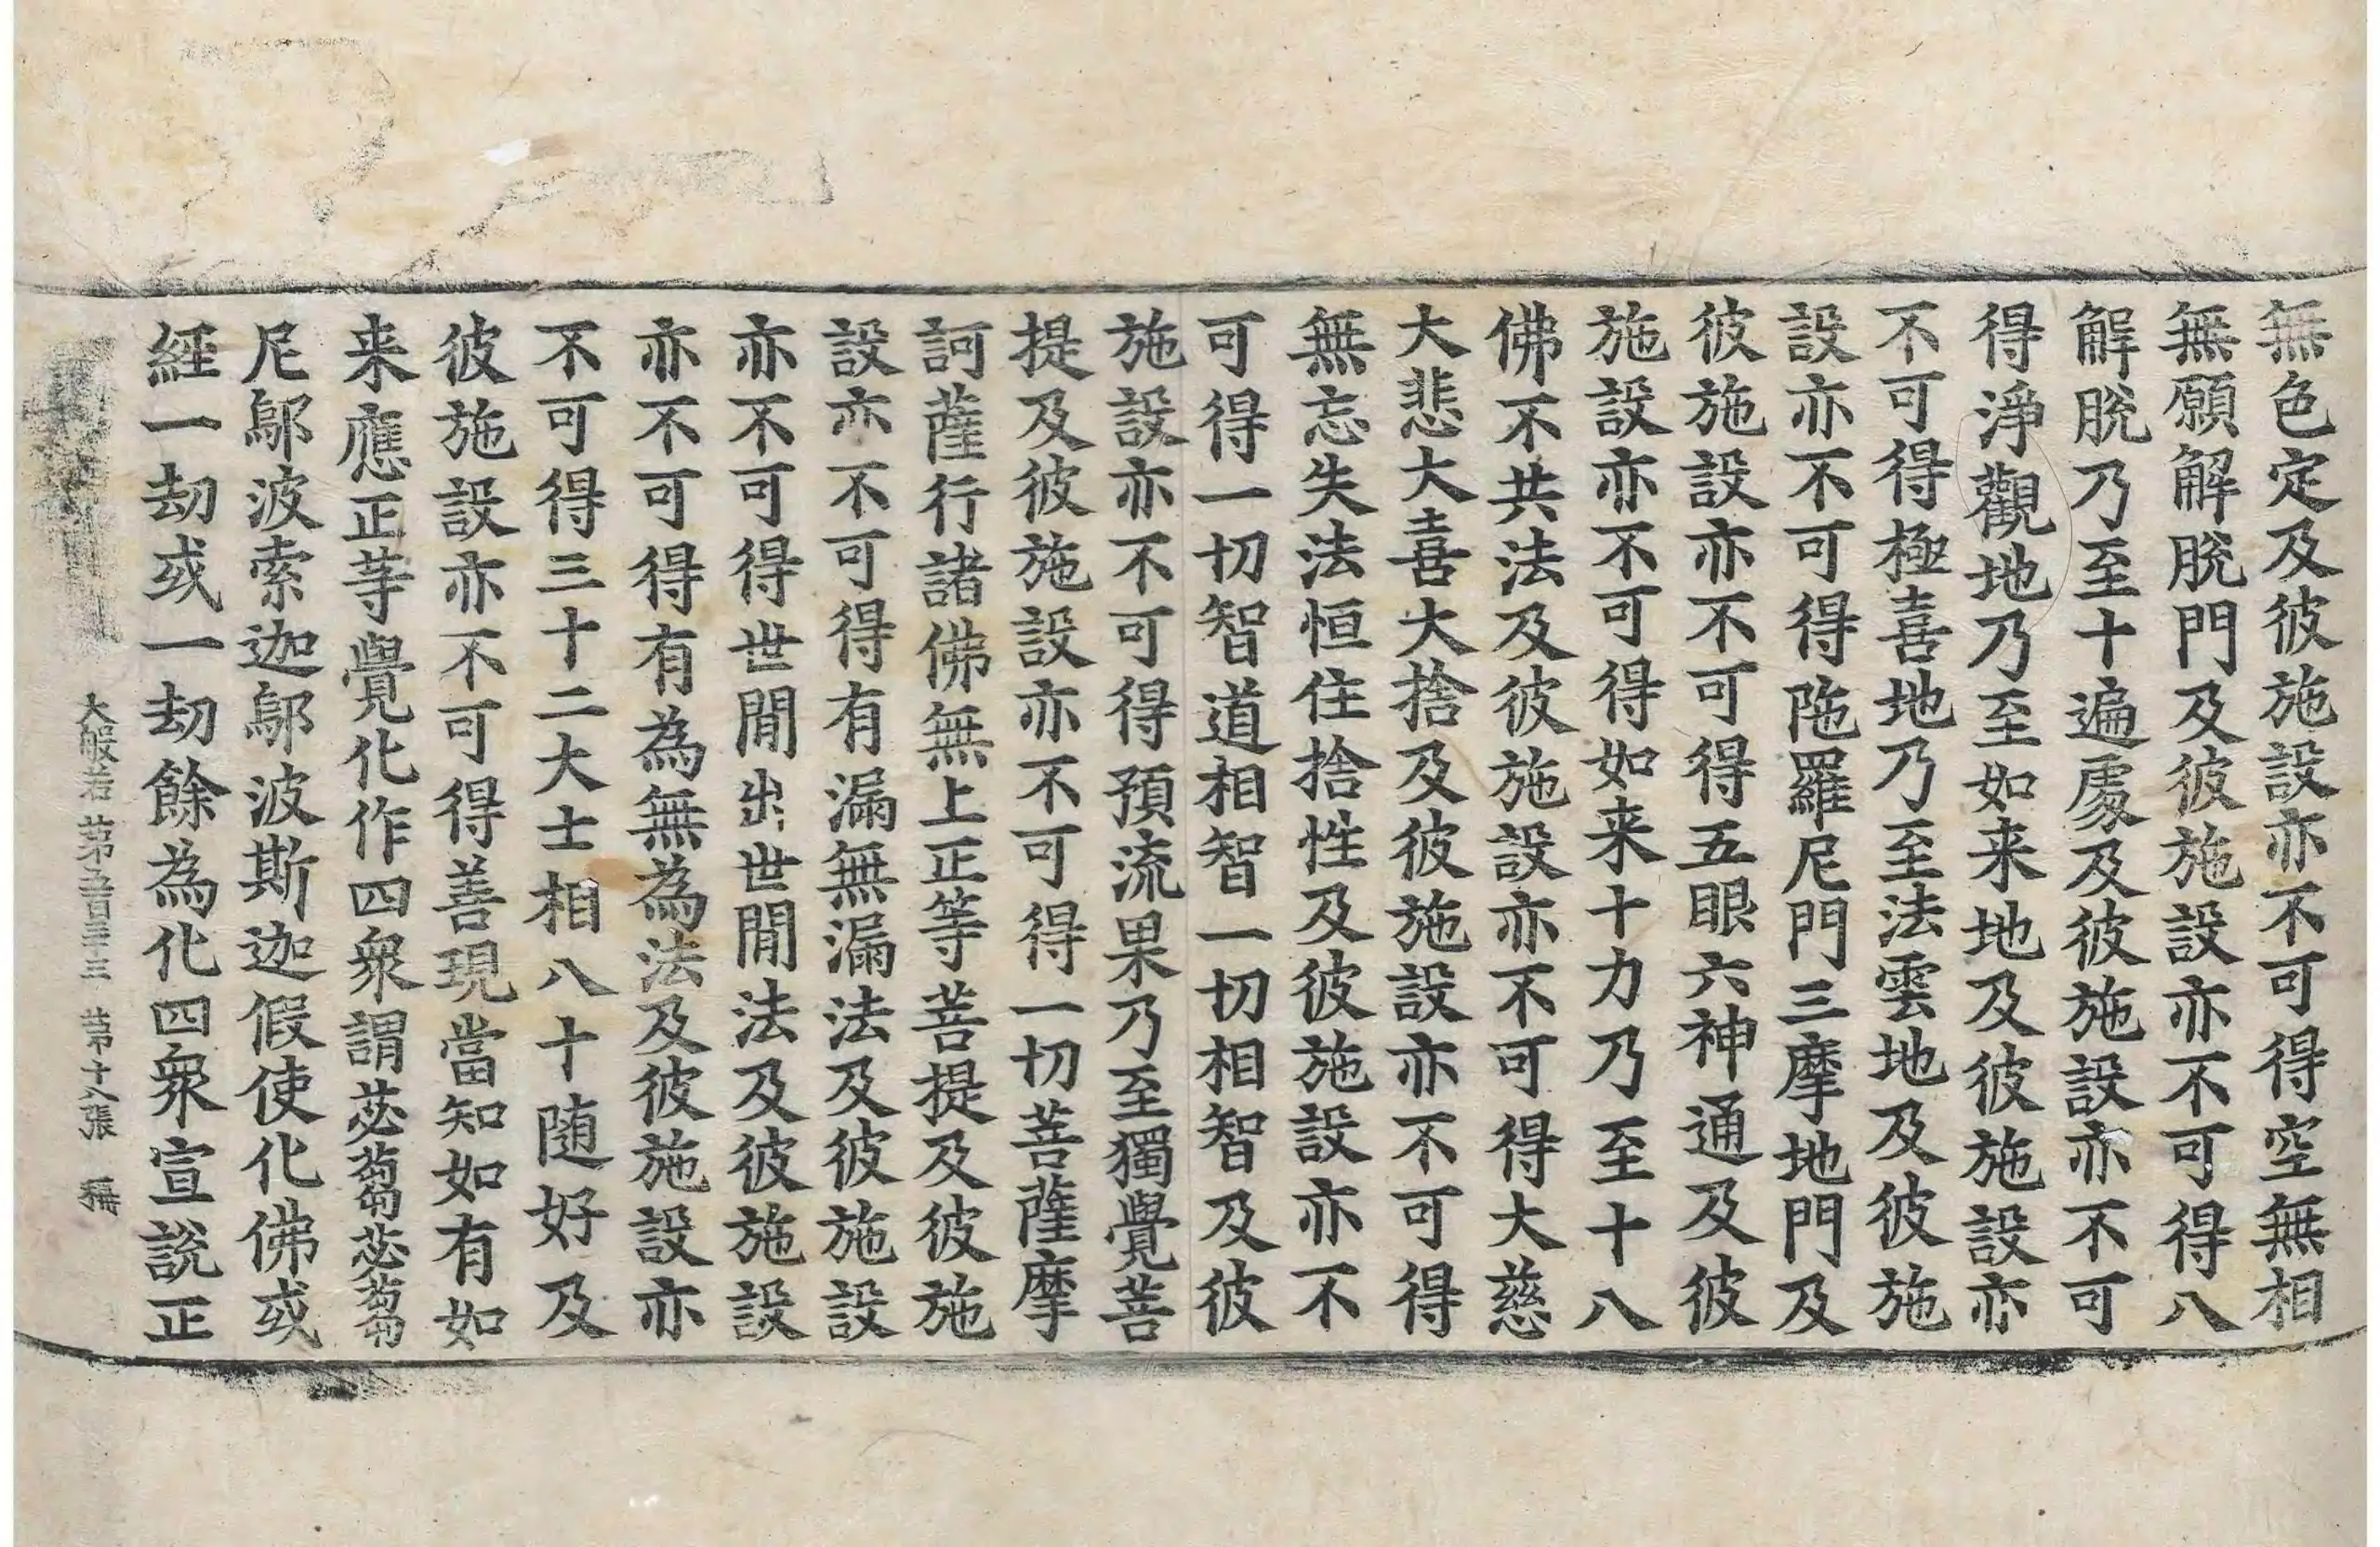 無色定及彼施設亦不可得空無相
無願解脫門及彼施設亦不可得八
解脫乃至十遍處及彼施設亦不可
得淨觀地乃至如来地及彼施設亦
不可得極喜地乃至法雲地及彼施
設亦不可得陁羅尼門三摩地門及
彼施設亦不可得五眼六神通及彼
施設亦不可得如来十力乃至十八
佛不共法及彼施設亦不可得大慈
大悲大喜大捨及彼施設亦不可得
無忘失法恒住捨性及彼施設亦不
可得一切智道相智一切相智及彼
施設亦不可得預流果乃至獨覺菩
提及彼施設亦不可得一切菩薩摩
訶薩行諸佛無上正等菩提及彼施
設亦不可得有漏無漏法及彼施設
亦不可得世間出世間法及彼施設
亦不可得有為無為法及彼施設亦
不可得三十二大士相八十随好及
彼施設亦不可得善現當知如有如
来應正等覺化作四衆謂苾蒭苾蒭
尼鄔波索迦鄔波斯迦假使化佛或
經一劫或一劫餘為化四衆宣說正
大般若 第五百三十三 第十八張